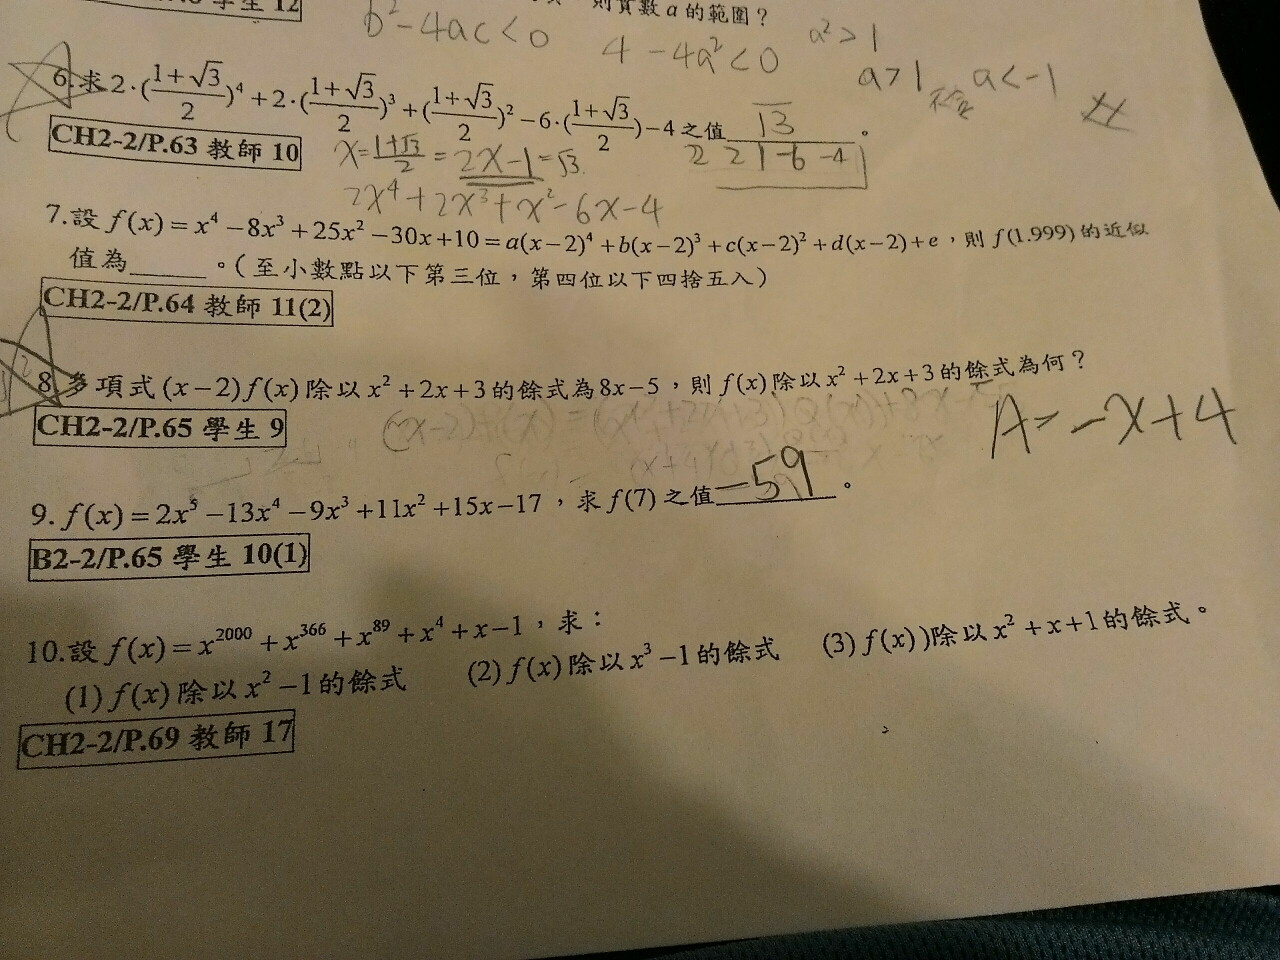 學生 12
則實數 a 的範圍？
b²-4ac<0 4-4a²<0 a²>1
a>1 a<-1
6.求 2·((1+√3)/2)⁴+2·((1+√3)/2)³+((1+√3)/2)²-6·((1+√3)/2)-4 之值 。
CH2-2/P.63 教師 10
x=(1+√3)/2 = 2x-1=√3 2 2 1 -6 -4
2x⁴+2x³+x²-6x-4
7.設 f(x)=x⁴-8x³+25x²-30x+10=a(x-2)⁴+b(x-2)³+c(x-2)²+d(x-2)+e，則 f(1.999)的近似
值為______。(至小數點以下第三位，第四位以下四捨五入)
CH2-2/P.64 教師 11(2)
8.多項式(x-2)f(x)除以 x²+2x+3的餘式為8x-5，則 f(x)除以x²+2x+3的餘式為何？
CH2-2/P.65 學生 9
A=-x+4
9.f(x)=2x⁵-13x⁴-9x³+11x²+15x-17，求f(7)之值-59。
B2-2/P.65 學生 10(1)
10.設f(x)=x²⁰⁰⁰+x³⁶⁶+x⁸⁹+x⁴+x-1，求：
(1)f(x)除以x²-1的餘式 (2)f(x)除以x³-1的餘式 (3)f(x))除以x²+x+1的餘式。
CH2-2/P.69 教師 17